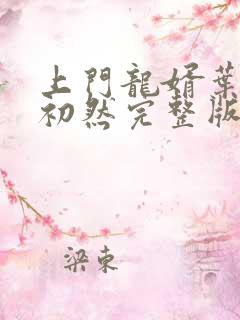 上門龍婿葉
初然完整版
梁東